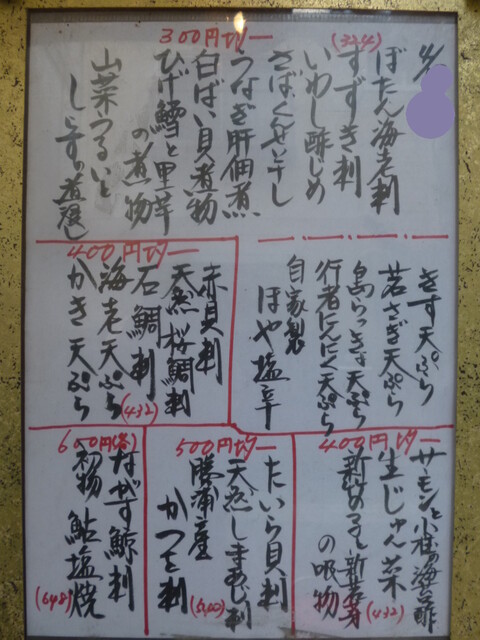 4/
300円均一
(324)
ぼたん海老刺
すずき刺
いわし酢じめ
さばくんせい
うなぎ肝佃煮
白ばい貝煮物
ひげ鱈と里芋
の煮物
山菜うるいと
しらすの煮浸し
きす天ぷら
若さぎ天ぷら
島らっきょ天ぷら
行者にんにく天ぷら
自家製
ほや塩辛
400円均一
赤貝刺
天然桜鯛刺
石鯛刺
海老天ぷら
かき天ぷら
(432)
400円均一
サーモンと小柱の酢
生じゅん菜
新竹の子と新若芽
の吸物
(432)
500円均一
たいら貝刺
天然しまあじ刺
勝浦産
かつを刺
(540)
600円(各)
ながす鯨刺
初物 鮎塩焼
(648)